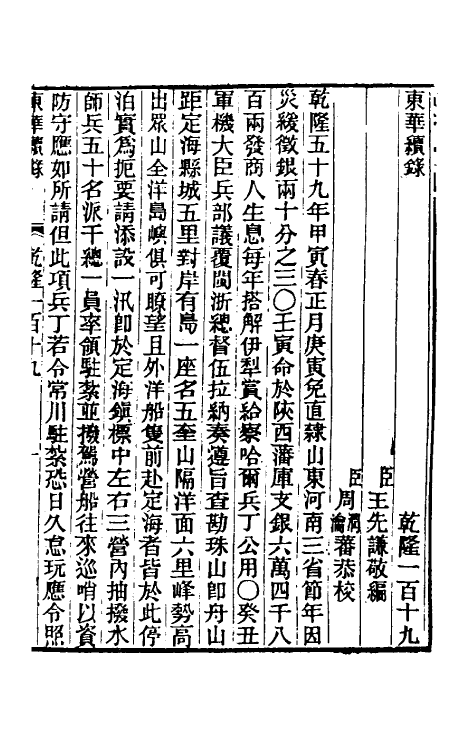 東華續錄
乾隆一百十九
臣王先謙敬編
臣周潤蕃瀹蕃恭校
乾隆五十九年甲寅春正月庚寅免直隸山東河南三省節年因
災緩徵銀兩十分之三○壬寅命於陝西藩庫支銀六萬四千八
百兩發商人生息每年搭解伊犁賞給察哈爾兵丁公用○癸丑
軍機大臣兵部議覆閩浙總督伍拉納奏遵旨查勘珠山卽舟山
距定海縣城五里對岸有島一座名五奎山隔洋面六里峰勢高
出眾山全洋島嶼俱可瞭望且外洋船隻前赴定海者皆於此停
泊實爲扼要請添設一汛卽於定海鎮標中左右三營內抽撥水
師兵五十名派千總一員率領駐紮並撥駕營船往來巡哨以資
防守應如所請但此項兵丁若令常川駐紮恐日久怠玩應令照
東華續錄 乾隆一百十九 一